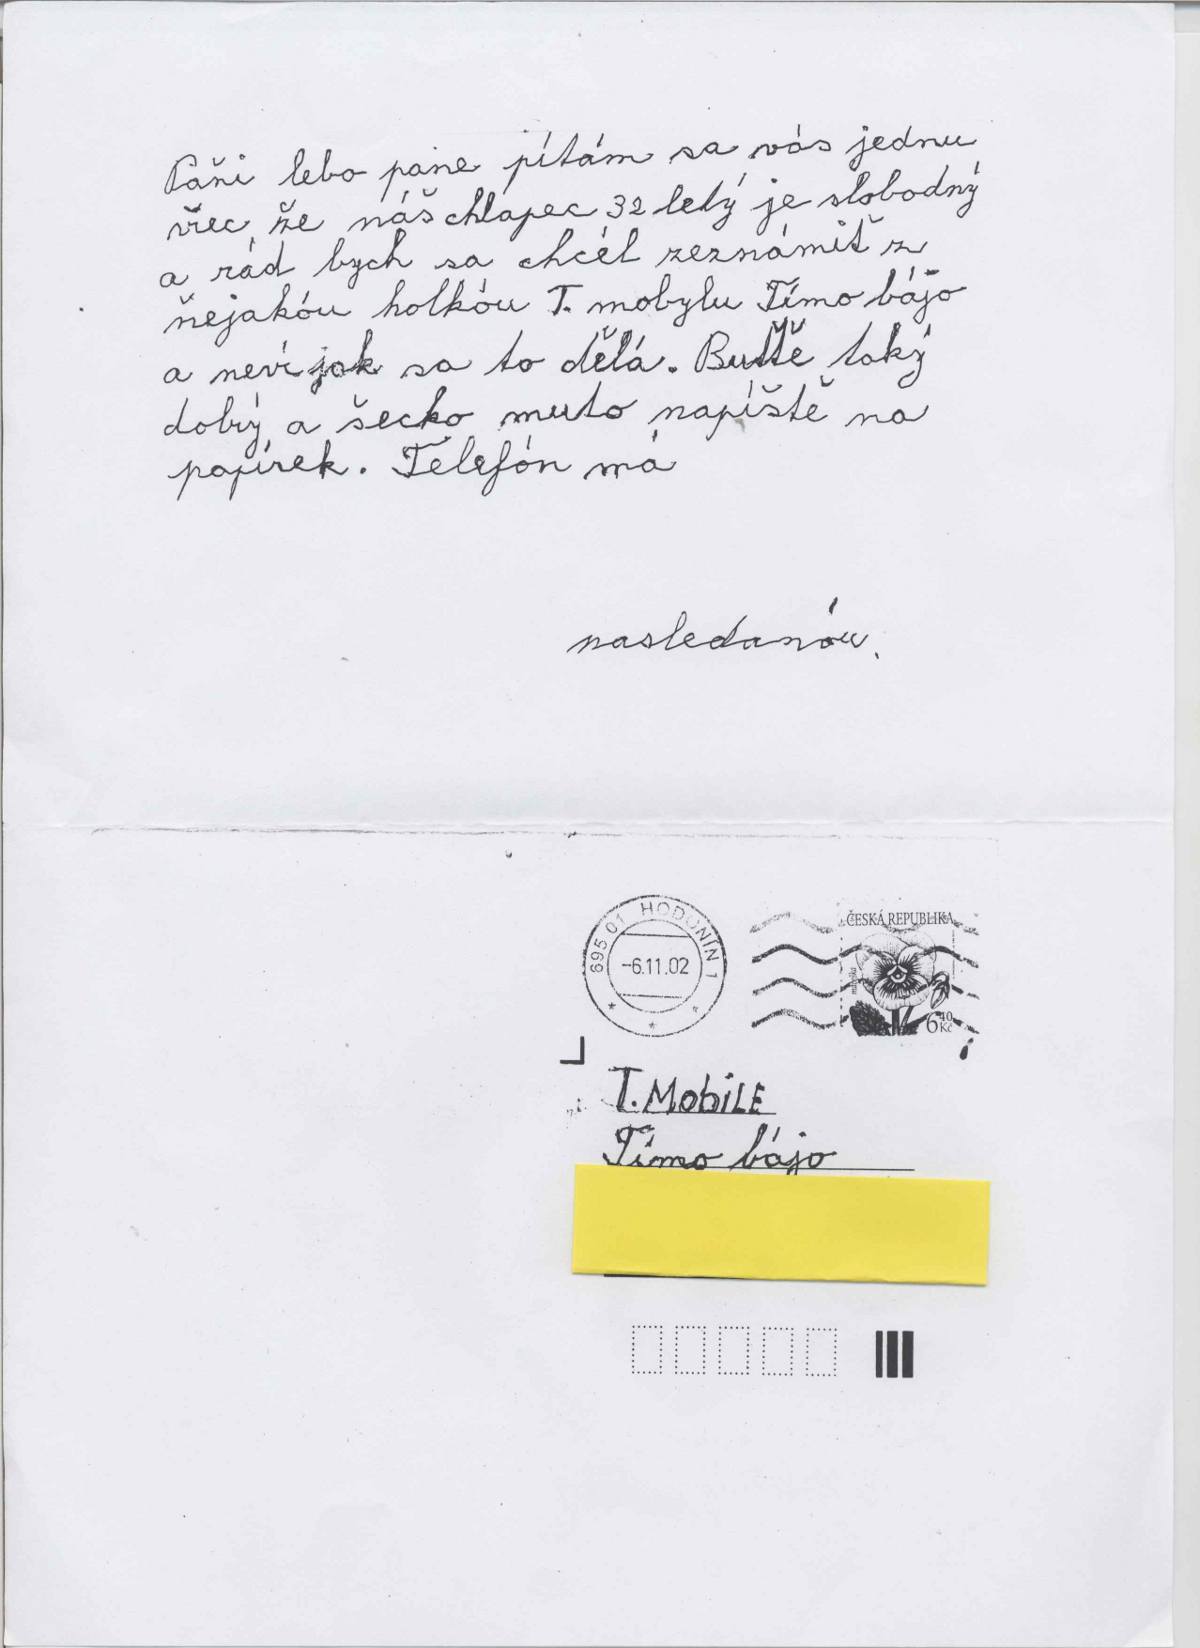 Páňi lebo pane pítám sa vás jednu
vřec že náš chlapec 32 letý je slobodný
a rád bych sa chcél zeznámiť z
ňejakóu holkóu T. mobylu Tímo bájo
a neví jak sa to dělá. Butťě taký
dobrý a šecko muto napíště na
papírek. Télefón má
nasledanóu.
695 01 HODONÍN 1
-6.11.02
ČESKÁ REPUBLIKA
6 40 Kč
T. MobiLE
Tímo bájo